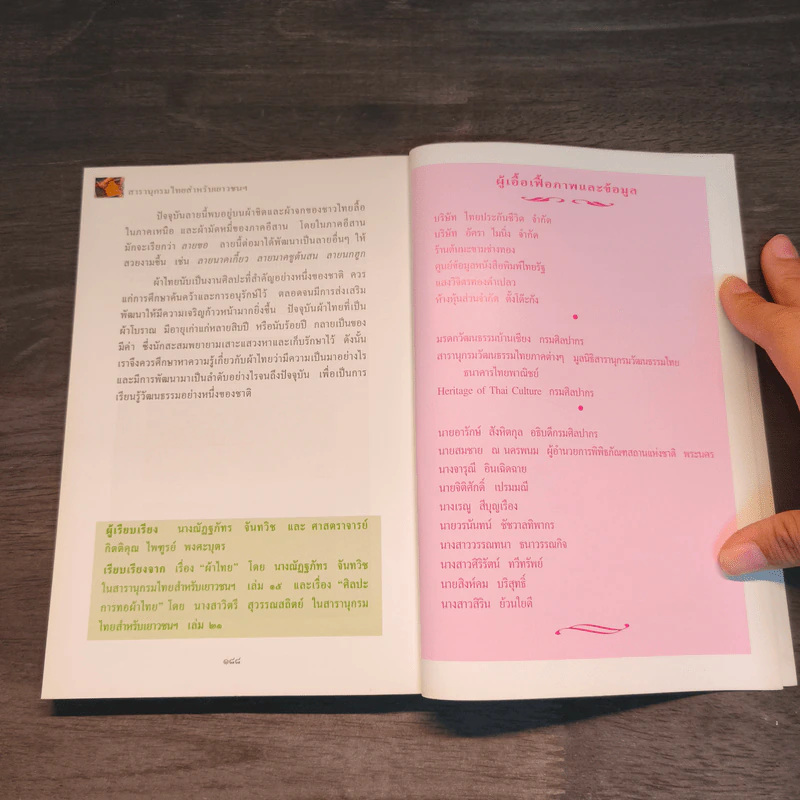 สารานุกรมไทยสำหรับเยาวชนฯ
ปัจจุบันลายนี้พบอยู่บนผ้าขิดและผ้าจกของชาวไทยลื้อ
ในภาคเหนือ และผ้ามัดหมี่ของภาคอีสาน โดยในภาคอีสาน
มักจะเรียกว่า ลายขอ ลายนี้ต่อมาได้พัฒนาเป็นลายอื่นๆ ให้
สวยงามขึ้น เช่น ลายนาคเกี้ยว ลายนาคชูต้นสน ลายนกฮูก
ผ้าไทยนับเป็นงานศิลปะที่สำคัญอย่างหนึ่งของชาติ ควร
แก่การศึกษาค้นคว้าและการอนุรักษ์ไว้ ตลอดจนมีการส่งเสริม
พัฒนาให้มีความเจริญก้าวหน้ามากยิ่งขึ้น ปัจจุบันผ้าไทยที่เป็น
ผ้าโบราณ มีอายุเก่าแก่หลายสิบปี หรือนับร้อยปี กลายเป็นของ
มีค่า ซึ่งนักสะสมพยายามเสาะแสวงหาและเก็บรักษาไว้ ดังนั้น
เราจึงควรศึกษาหาความรู้เกี่ยวกับผ้าไทยว่ามีความเป็นมาอย่างไร
และมีการพัฒนามาเป็นลำดับอย่างไรจนถึงปัจจุบัน เพื่อเป็นการ
เรียนรู้วัฒนธรรมอย่างหนึ่งของชาติ
ผู้เรียบเรียง นางณัฏฐภัทร จันทวิช และ ศาสตราจารย์
กิตติคุณ ไพฑูรย์ พงศะบุตร
เรียบเรียงจาก เรื่อง “ผ้าไทย” โดย นางณัฏฐภัทร จันทวิช
ในสารานุกรมไทยสำหรับเยาวชนฯ เล่ม ๑๕ และเรื่อง “ศิลปะ
การทอผ้าไทย” โดย นางสาวิตรี สุวรรณสถิตย์ ในสารานุกรม
ไทยสำหรับเยาวชนฯ เล่ม ๒๑
๑๘๘
ผู้เอื้อเฟื้อภาพและข้อมูล
บริษัท ไทยประกันชีวิต จำกัด
บริษัท อัครา ไมนิ่ง จำกัด
ร้านต้นมะขามช่างทอง
ศูนย์ข้อมูลหนังสือพิมพ์ไทยรัฐ
แสงวิจิตรทองคำเปลว
ห้างหุ้นส่วนจำกัด ตั้งโต๊ะกัง
มรดกวัฒนธรรมบ้านเชียง กรมศิลปากร
สารานุกรมวัฒนธรรมไทยภาคต่างๆ มูลนิธิสารานุกรมวัฒนธรรมไทย
ธนาคารไทยพาณิชย์
Heritage of Thai Culture กรมศิลปากร
นายอารักษ์ สังหิตกุล อธิบดีกรมศิลปากร
นายสมชาย ณ นครพนม ผู้อำนวยการพิพิธภัณฑสถานแห่งชาติ พระนคร
นางจารุณี อินเฉิดฉาย
นายจิติศักดิ์ เปรมมณี
นางเรณู สีบุญเรือง
นายวรนันทน์ ชัชวาลทิพากร
นางสาววรรณทนา ธนาวรรณกิจ
นางสาวศิริรัตน์ ทวีทรัพย์
นายสิงห์คม บริสุทธิ์
นางสาวสิริน ย้วนใยดี